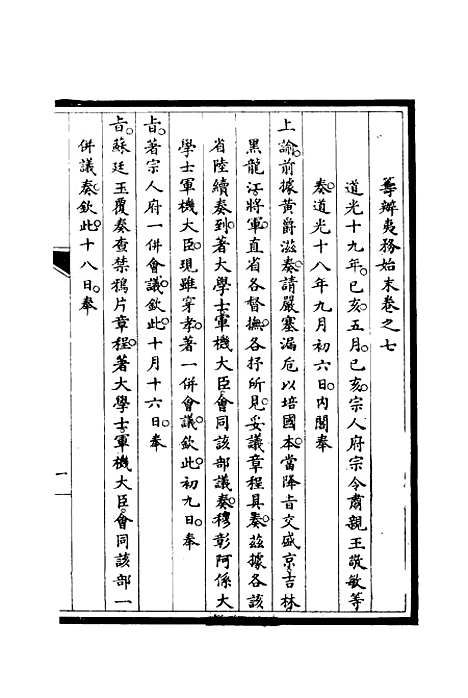 籌辦夷務始末卷之七
道光十九年。己亥五月。己亥。宗人府宗令肅親王敬敏等
奏道光十八年九月初六日。內閣奉
上諭。前據黃爵滋奏請嚴塞漏卮以培國本。當降旨交盛京。吉林。
黑龍江將軍。直省各督撫。各抒所見。妥議章程具奏。茲據各該
省陸續奏到。著大學士。軍機大臣。會同該部議奏。穆彰阿係大
學士軍機大臣。現雖穿孝。著一併會議。欽此。初九日。奉
旨。著宗人府一併會議。欽此。十月十六日。奉
旨。蘇廷玉覆奏查禁鴉片章程。著大學士。軍機大臣。會同該部一
併議奏。欽此。十八日。奉
一